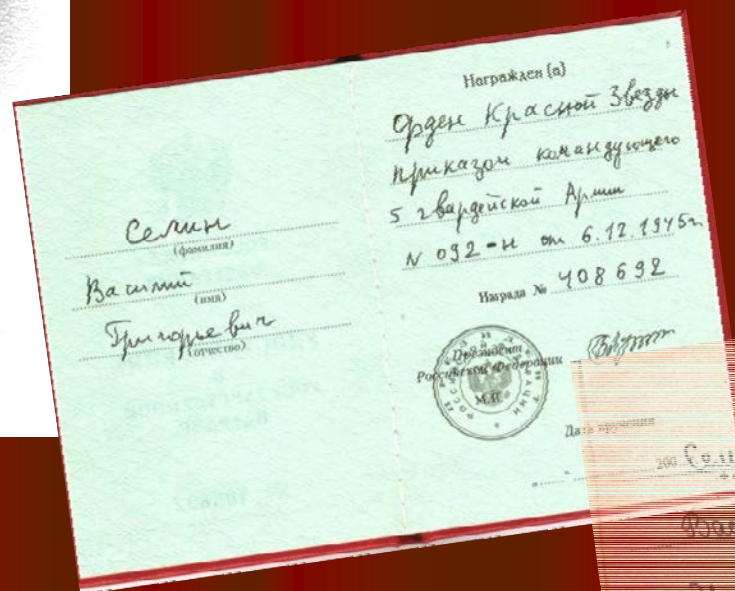 Селин
(фамилия)
Василий
(имя)
Григорьевич
(отчество)
Награжден (а)
Орден Красной Звезды
приказом командующего
5 гвардейской Армии
N 092-н от 6.12.1945г
Награда № 408692
Президент
Российской Федерации
М.П.
Дата вручения
200